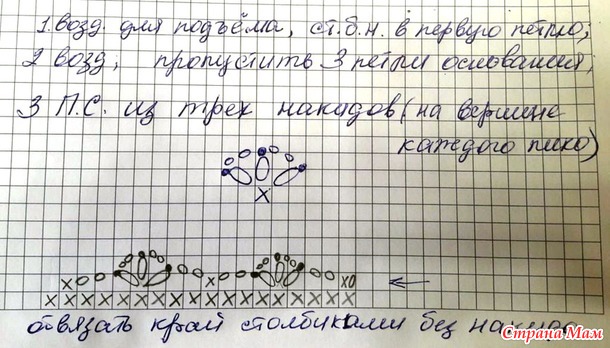 1. возд. для подъёма, ст.б.н. в первую петлю,
2 возд, пропустить 3 петли основания,
3 П.С. из трех накидов (на вершине
каждого пико)
обвязать край столбиками без накида
Страна Мам